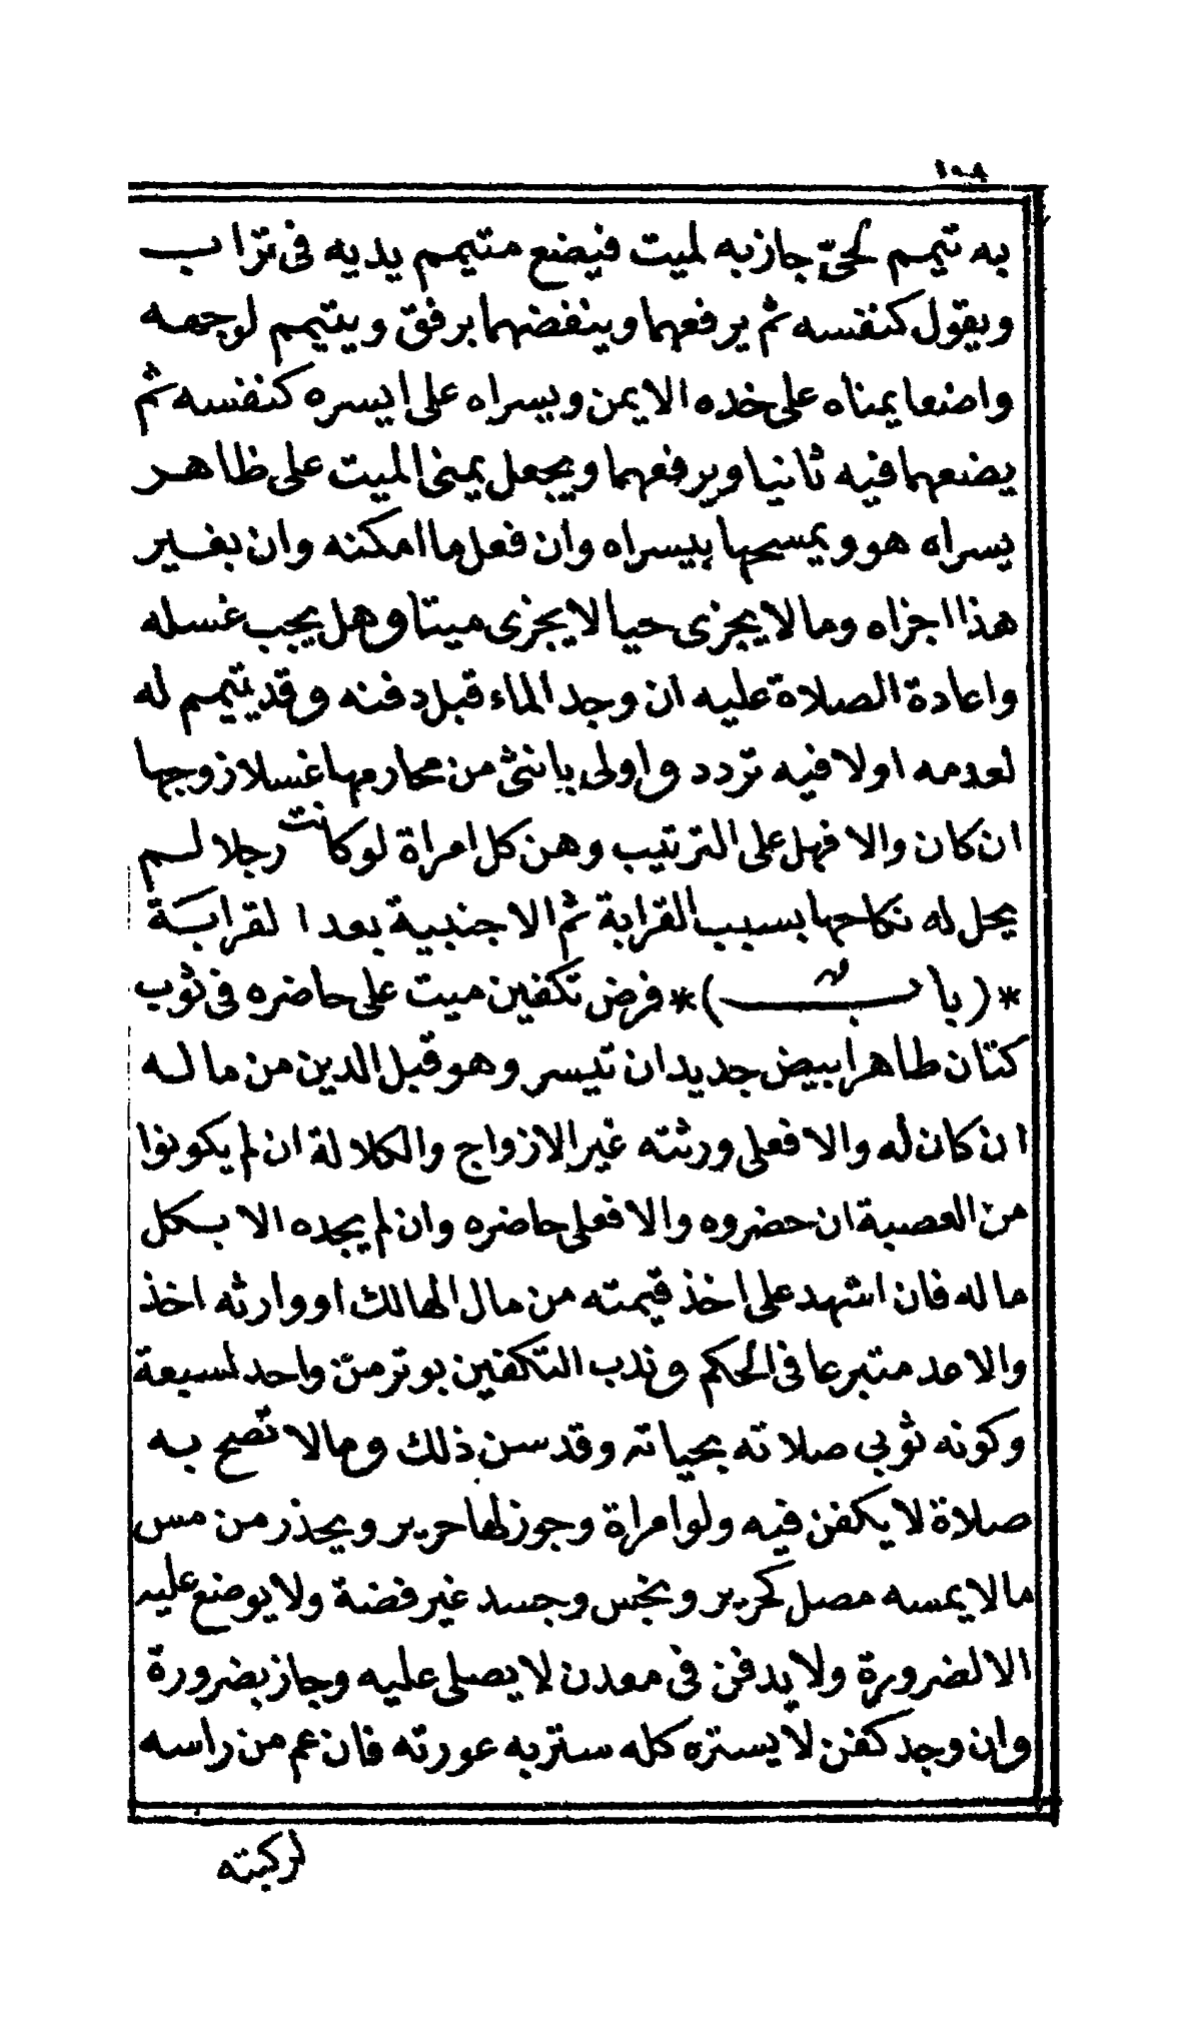 ١٠٨
به تيمم لحيّ جاز به لميت فيضع متيمم يديه فى تراب
ويقول كنفسه ثم يرفعهما وينفضهما برفق ويتيمم لوجهه
واضعا يمناه على خده الايمن ويسراه على ايسره كنفسه ثم
يضعهما فيه ثانيا ويرفعهما ويجعل يمنى الميت على ظاهر
يسراه هو ويمسحها بيسراه وان فعل ما امكنه وان بغير
هذا اجزاه وما لا يجزى حيا لا يجزى ميتا وهل يجب غسله
واعادة الصلاة عليه ان وجد الماء قبل دفنه وقد يتيمم له
لعدمه اولا فيه تردد واولى بانثى من محارمها غسلا زوجها
ان كان والا فهل على الترتيب وهن كل امراة لو كانت رجلا لم
يحل له نكاحها بسبب القرابة ثم الاجنبية بعد القرابة
*(باب)* فرض تكفين ميت على حاضره فى ثوب
كتان طاهر ابيض جديد ان تيسر وهو قبل الدين من ماله
ان كان له والا فعلى ورثته غير الازواج والكلالة ان لم يكونوا
من العصبة ان حضروه والا فعلى حاضره وان لم يجده الا بكل
ماله فان اشهد على اخذ قيمته من مال الهالك او وارثه اخذ
والا عد متبرعا فى الحكم وندب التكفين بوتر من واحد لسبعة
وكونه ثوبي صلاته بحياته وقد سن ذلك وما لا تصح به
صلاة لا يكفن فيه ولو امراة وجوز لها حرير ويحذر من مس
ما لا يمسه مصل كحرير ونجس وجسد غير فضة ولا يوضع عليه
الا لضرورة ولا يدفن فى معدن لا يصلى عليه وجاز بضرورة
وان وجد كفن لا يستره كله ستر به عورته فان عم من راسه
لركبته